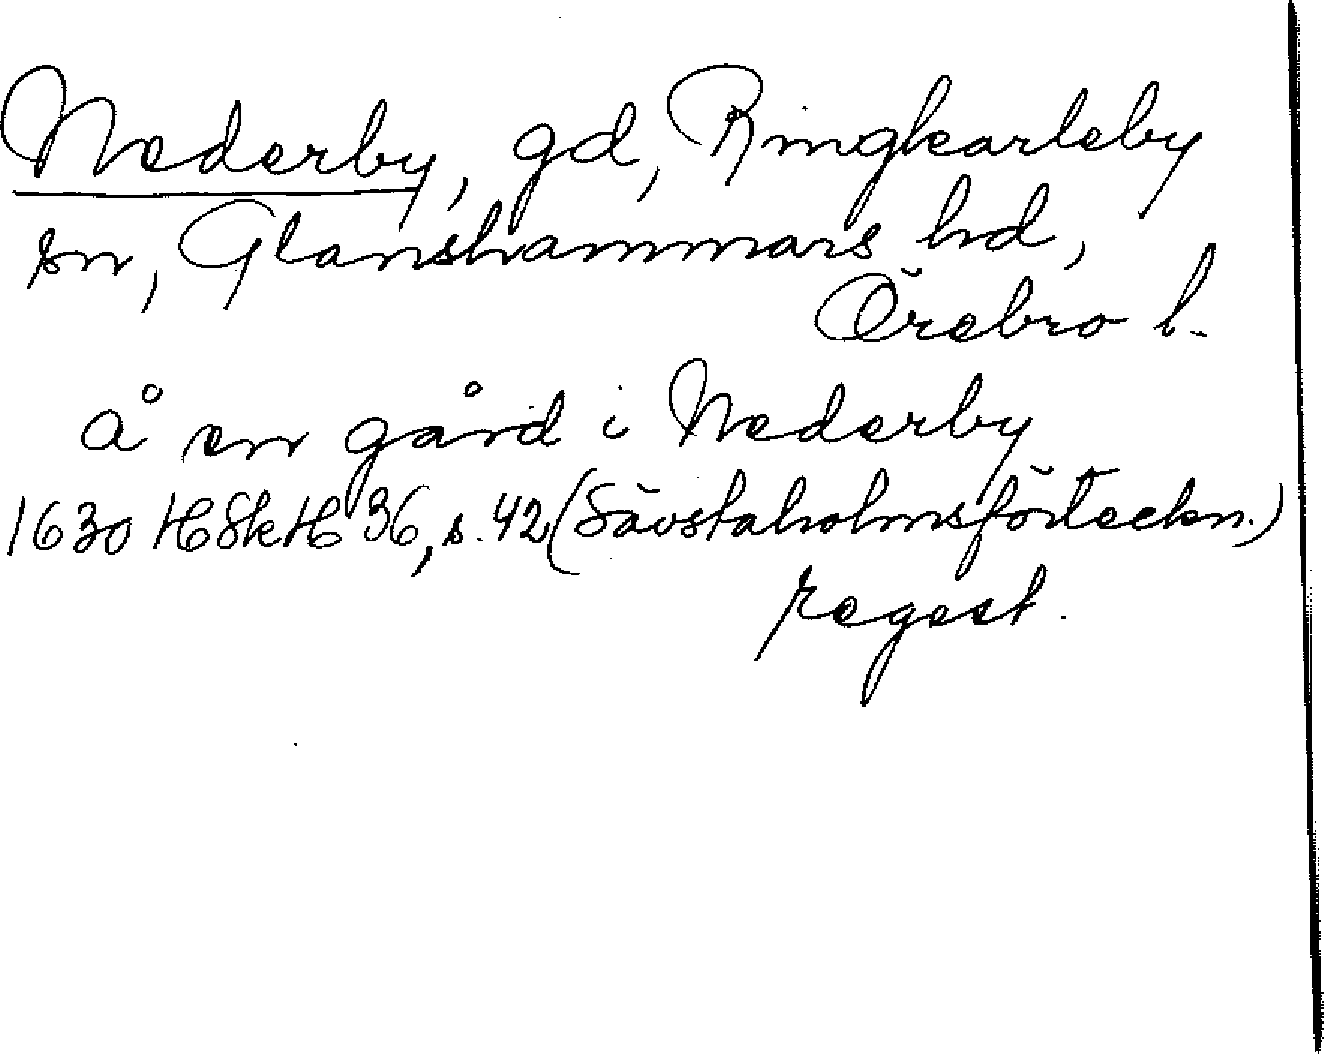 Nederby, gd, Ringkarleby
sn, Glanshammars hd,
Örebro l.
å en gård i Nederby
1630 HSkH 36, s. 42 (Sävstaholmsförteckn.)
regest.